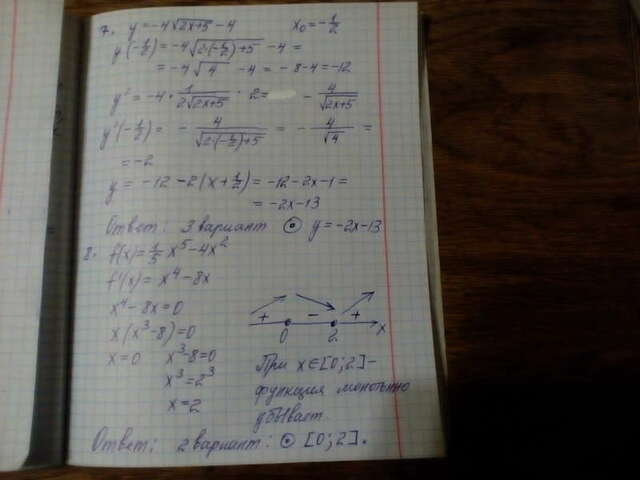 7. y = -4√(2x+5) - 4    x₀ = -1/2
y(-1/2) = -4√(2·(-1/2)+5) - 4 =
= -4√4 - 4 = -8-4 = -12
y' = -4 · 1/(2√(2x+5)) · 2 = - 4/√(2x+5)
y'(-1/2) = - 4/√(2·(-1/2)+5) = - 4/√4 =
= -2
y = -12 - 2(x + 1/2) = -12 - 2x - 1 =
= -2x - 13
Ответ: 3 вариант ⊙ y = -2x-13
8. f(x) = 1/5 x⁵ - 4x²
f'(x) = x⁴ - 8x
x⁴ - 8x = 0
x(x³-8) = 0
x = 0    x³-8 = 0
x³ = 2³
x = 2
+ - +
0 2 x
При x ∈ [0; 2] -
функция монотонно
убывает
Ответ: 2 вариант: ⊙ [0; 2].